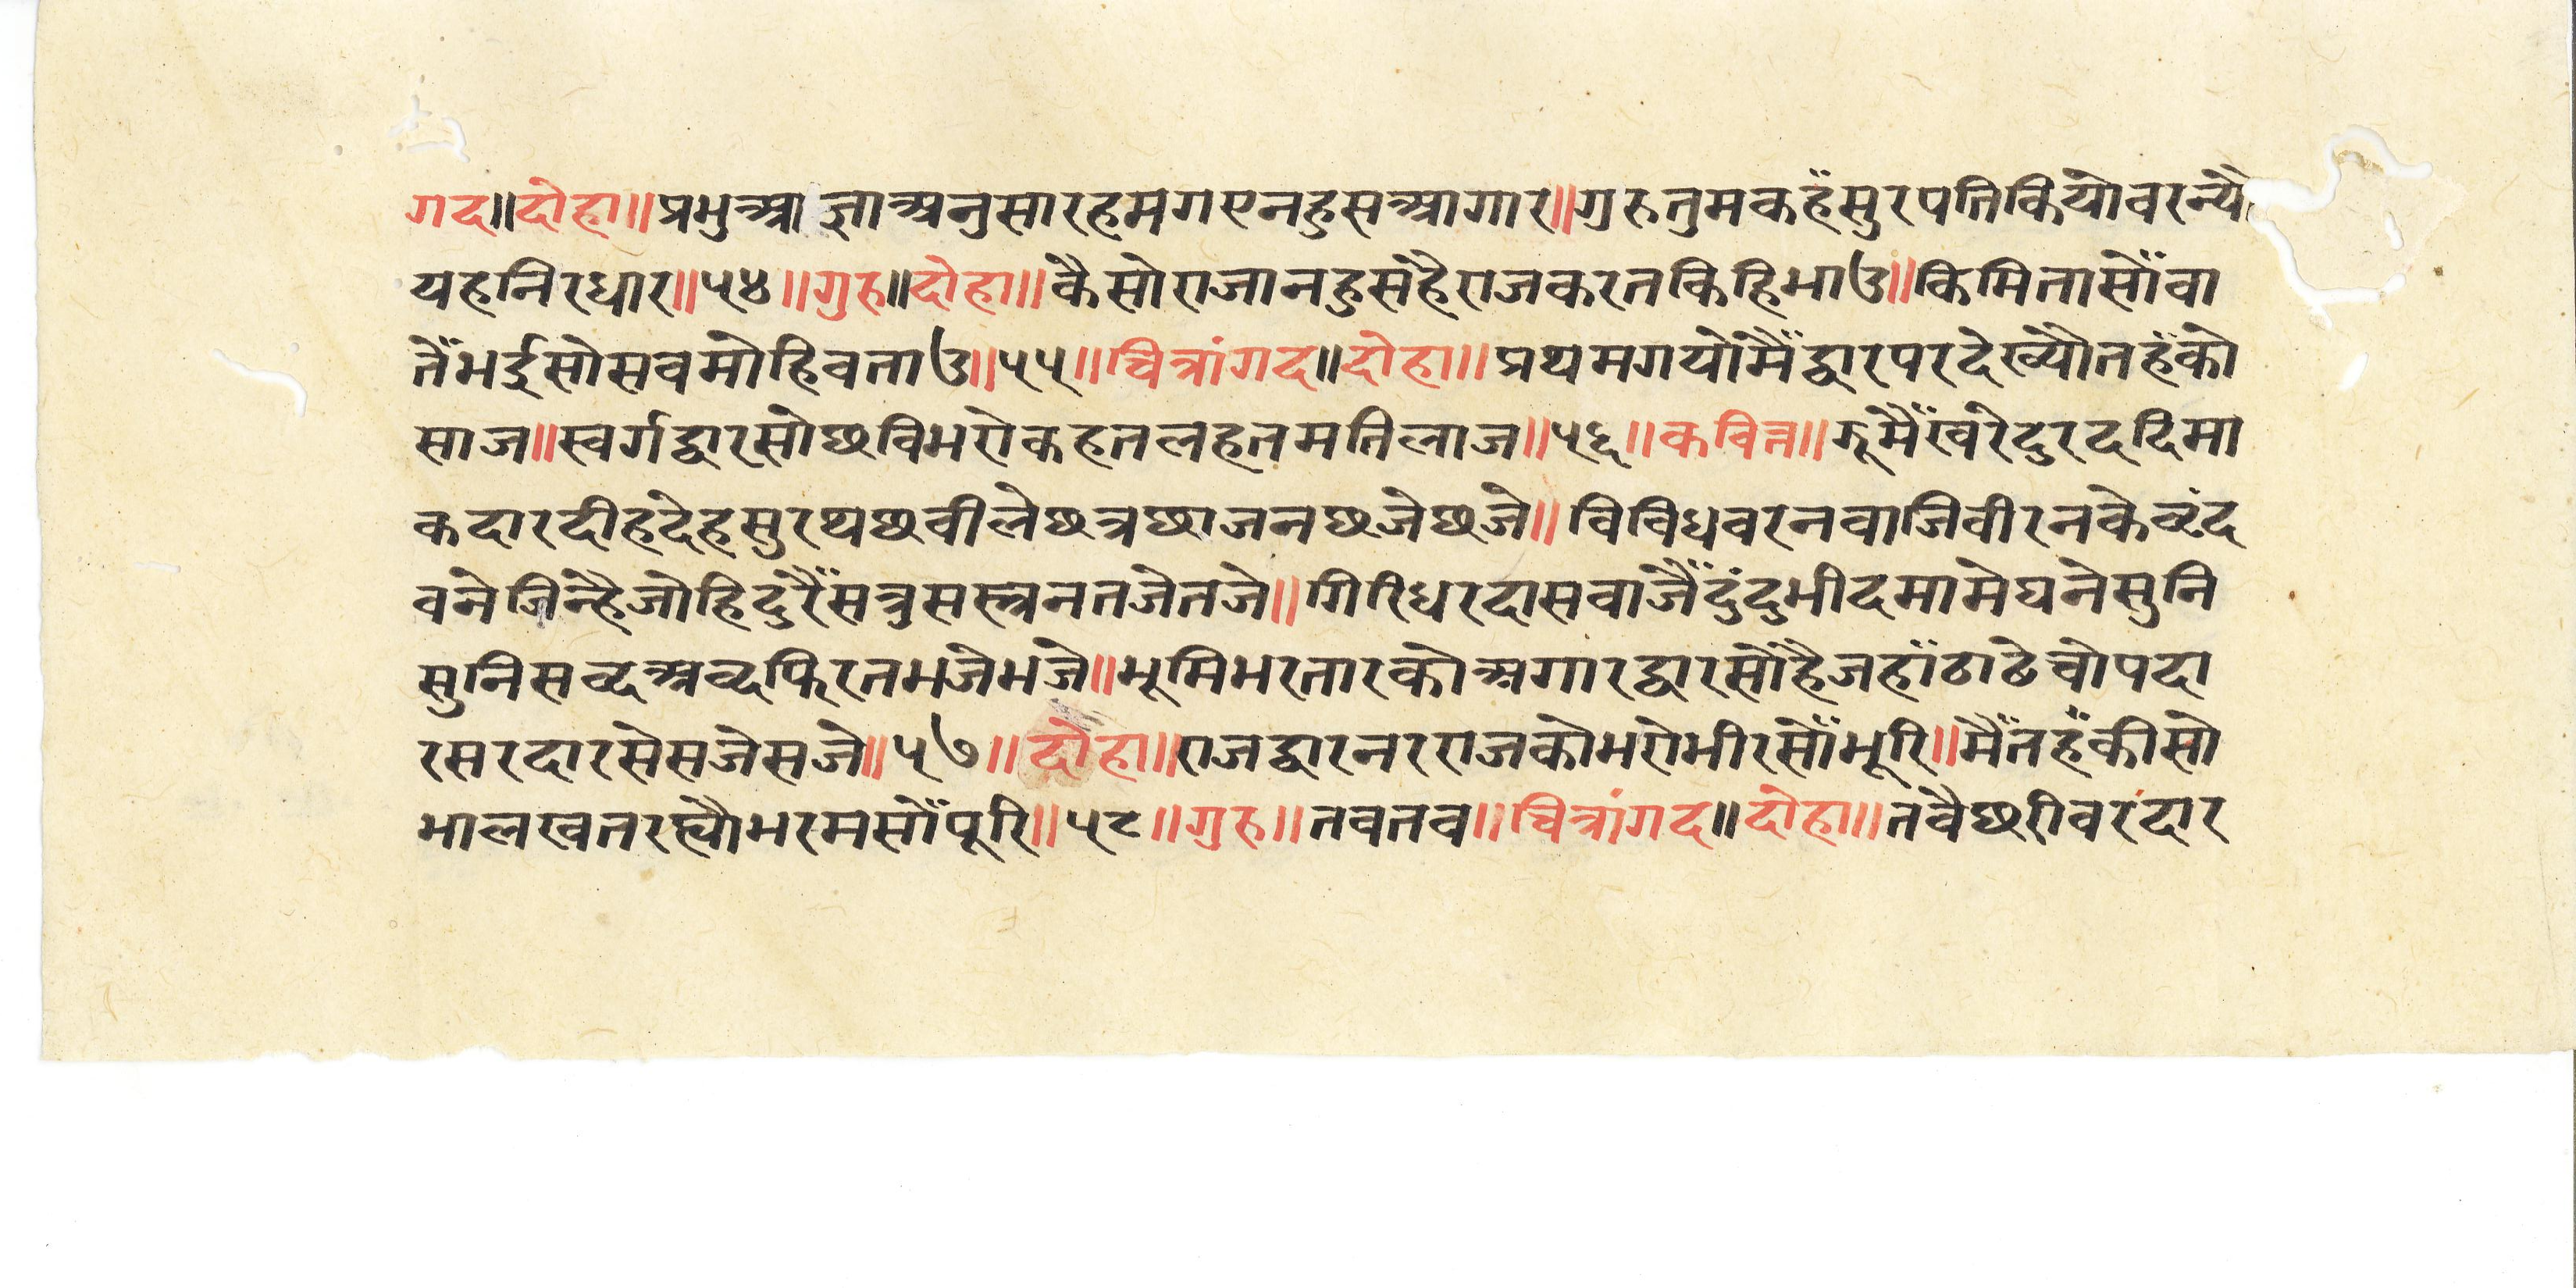 गद॥दोहा॥प्रभुआज्ञाअनुसारहमगएनहुसआगार॥गुरुतुमकहँसुरपतिकियोवरन्यो
यहनिरधार॥५४॥गुरु॥दोहा॥कैसोराजानहुसहैराजकरतकिहिभाउ॥किमितासोँवा
तैँभईसोसवमोहिवताउ॥५५॥चित्रांगद॥दोहा॥प्रथमगयोमैँद्वारपरदेख्यौतहँको
साज॥स्वर्गद्वारसोछविभरोकहतलहतमतिलाज॥५६॥कवित्त॥झूमैँखरेदुरददिमा
कदारदीहदेहसुरथछवीलेछत्रछाजनछजेछजे॥विविधवरनवाजिवीरनकेवृंद
वनेजिन्हैजोहिदुरैँसत्रुसस्त्रनतजेतजे॥गिरिधरदासवाजैँदुंदुभीदमामेघनेसुनि
सुनिसव्दअव्दफिरतभजेभजे॥भूमिभरतारकोअगारद्वारसोहैजहाँठाढेचोपदा
रसरदारसेसजेसजे॥५७॥दोहा॥राजद्वारनरराजकोभरोभीरसोँभूरि॥मैँतहँकीसो
भालखतरह्यौभरमसोँपूरि॥५८॥गुरु॥तवतव॥चित्रांगद॥दोहा॥तवैछरीवरदार